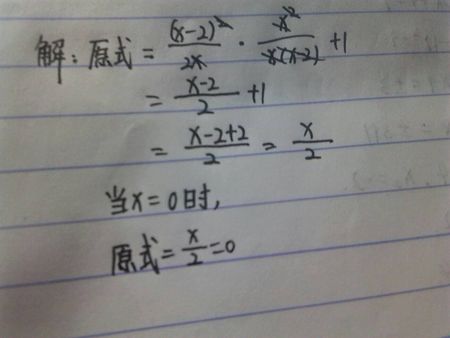 解：原式 = (x-2)²/2x · x²/x(x-2) + 1
= x-2/2 + 1
= x-2+2/2 = x/2
当x=0时，
原式 = x/2 = 0